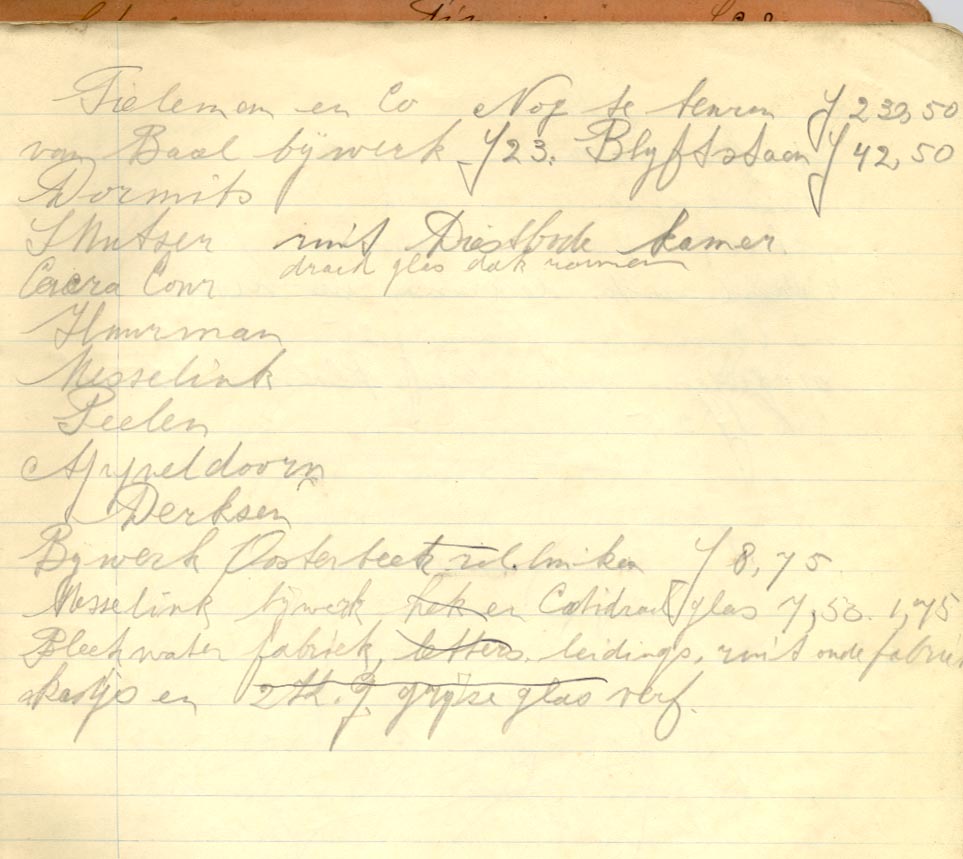 Tieleman en Co Nog te f 23,50
van Baal bijwerk f 23. Blyft staan f 42,50
Dormits
Smutser ruit Diestbode kamer
draad glas dak ramen
Huurman
Wesselink
Peelen
Appeldoorn
Derksen
Bywerk Oosterbeek rol.luiken f 8,75
Wesselink bijwerk hek en Catidraal glas 7,50. 1,75
Bleekwater fabriek, letters. leidings, ruit oude fabriek
kastjes en 2 K.g. grijze glas verf.